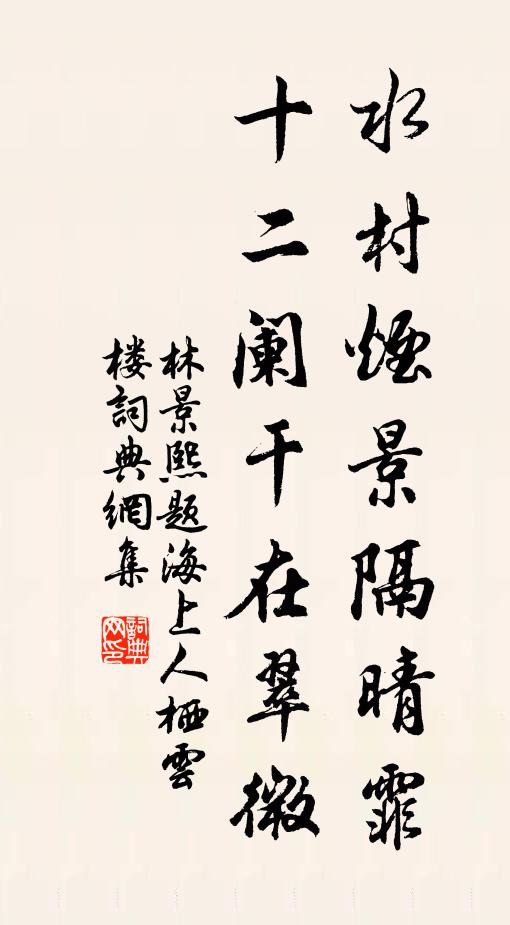 水村煙景隔晴霏
十二阑干在翠微
林景熙题海上人栖雲
楼詞典網集
詞典网印